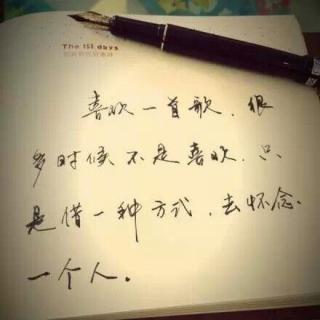 The 1st days
喜欢一首歌，很
多时候不是喜欢，只
是借一种方式，去怀念
一个人。